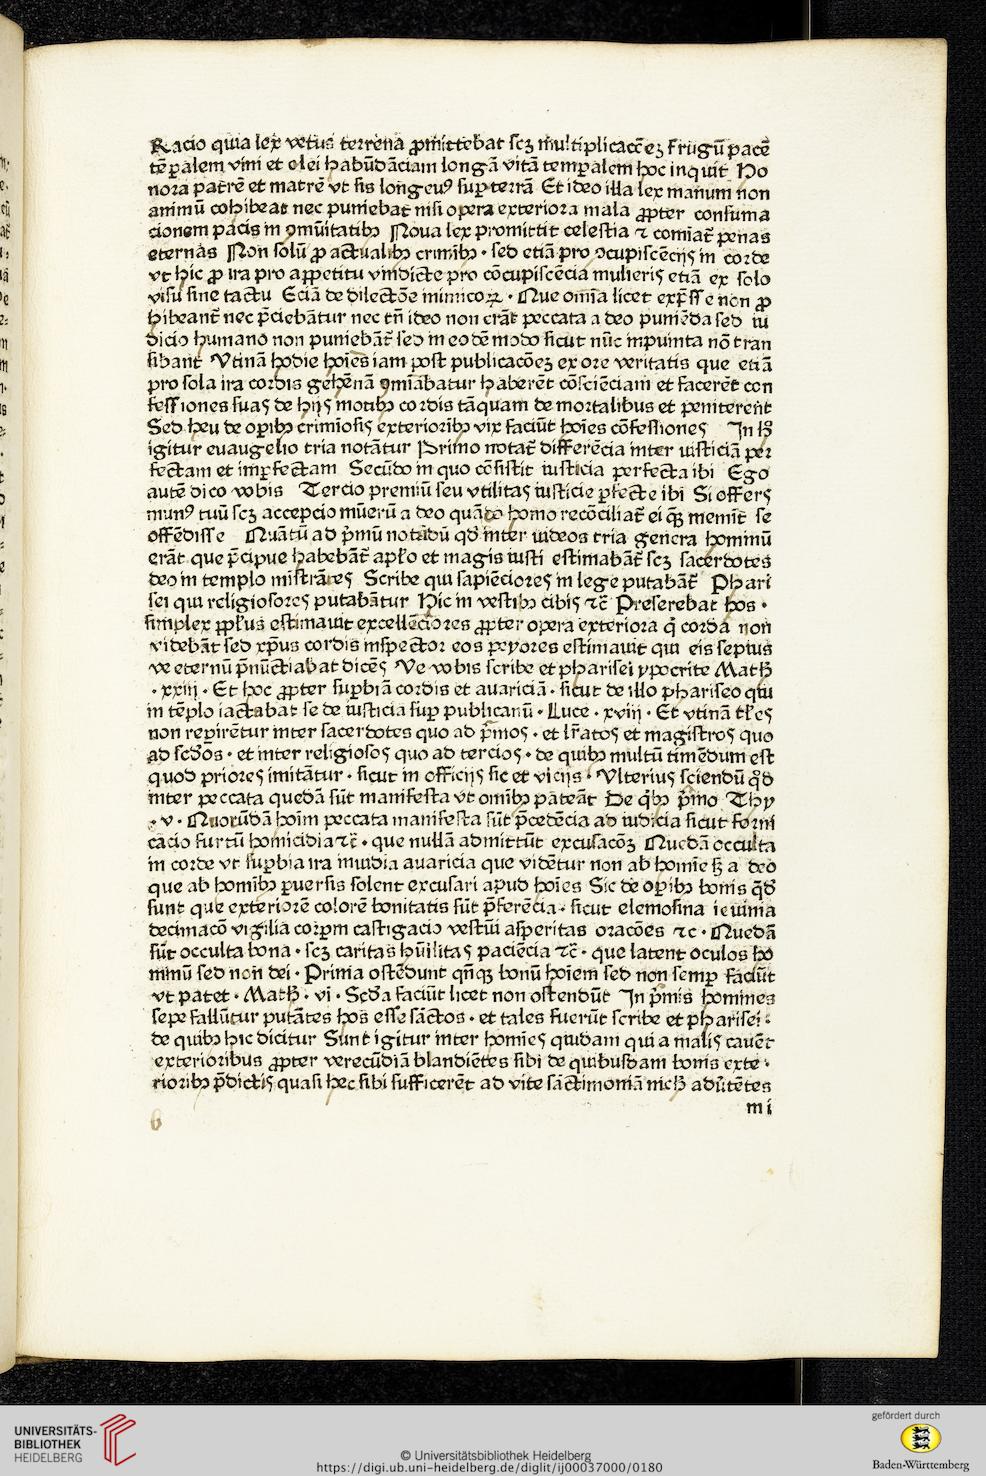 Racio quia lex vetus terrena ꝓmittebat scꝫ m̄ltiplicacōeꝫ frugū pacē
tēꝑalem vini et olei habūdāciam longā vitā temꝑalem hoc inquit Ho
nora patrē et matrē vt sis longeuꝰ suꝑ terrā Et ideo illa lex manum non
animū cohibeat nec puniebat nisi opera exteriora mala ꝓpter consuma
cionem pacis in ꝯmūitatibꝫ Noua lex promittit celestia ⁊ comīat᷑ penas
eternas Non solū ꝓ actualibꝫ crimībꝫ · sed etiā pro ꝯcupiscēcijs in corde
vt hic ꝓ ira pro appetitu vindicte pro cōcupiscēcia mulieris etiā ex solo
visu sine tactu Eciā de dilectōe inimicoꝝ · Que omīa licet exp̄sse non ꝓ
hibeant᷑ nec p̄ciebātur nec tn̄ ideo non erāt peccata a deo puniēda sed iu
dicio humano non puniebāt᷑ sed in eodē modo sicut nūc inpuīta nō tran
sibant Vtinā hodie hoīes iam post publicacōeꝫ ex ore veritatis que etiā
pro sola ira cordis gehēnā ꝯmīabatur haberēt cōsciēciam et facerēt con
fessiones suas de hijs motibꝫ cordis tāquam de mortalibus et peniterent
Sed heu de oꝑibꝫ crimīosis exterioribꝫ vix faciūt hoīes cōfessiones In hͦ
igitur euaugelio tria notātur Primo notat᷑ differēcia inter iusticiā per
fectam et imꝑfectam Secūdo in quo cōsistit iusticia perfecta ibi Ego
autē dico vobis Tercio premiū seu vtilitas iusticie ꝑfecte ibi Si offers
munꝰ tuū scꝫ accepcio mūerū a deo quādo homo recōciliat᷑ ei quē meminit se
offēdisse Quātū ad p̄mū notādū qd̄ inter iudeos tria genera hominū
erāt que p̄cipue habebāt᷑ apl̄o et magis iusti estimabāt᷑ scꝫ sacerdotes
deo in templo mīstrātes Scribe qui sapiēciores in lege putabāt᷑ Phari
sei qui religiosores putabātur Hic in vestibꝫ cibis ⁊c̄ Preferebat hos ·
simplex ppl̄us estimauit excellēciores ꝓpter opera exteriora q̄ corda non
videbāt sed xp̄us cordis inspector eos peyores estimauit qui eis septius
ve eternū p̄nūctiabat dicēs Ve vobis scribe et pharisei ypocrite Math̄
· xxiij · Et hoc ꝓpter suꝑbiā cordis et auariciā · sicut de illo phariseo qui
in tēplo iactabat se de iusticia suꝑ publicanū · Luce · xviij · Et vtinā tl̄es
non reꝑirētur inter sacerdotes quo ad p̄mos · et lr̄atos et magistros quo
ad scd̄os · et inter religiosos quo ad tercios · de quibꝫ multū timēdum est
quod priores imitātur · sicut in officijs sic et vicijs · Vlterius sciendū qd̄
inter peccata quedā sūt manifesta vt omībꝫ pateāt De qͥbꝫ p̄mo Thy
· v · Quorūdā hoīm peccata manifesta sūt p̄cedēcia ad iudicia sicut forni
cacio furtū homicidia ⁊c̄ · que nullā admittūt excusacōꝫ Quedā occulta
in corde vt suꝑbia ira inuidia auaricia que vidētur non ab homīe sꝫ a deo
que ab homībꝫ ꝑuersis solent excusari apud hoīes Sic de oꝑibꝫ bonis qd̄
sunt que exteriorē colorē bonitatis sūt p̄ferēcia · sicut elemosina ieiunia
decimacō vigilia corꝑm castigacio vestiū asperitas oracōes ⁊c · Quedā
sūt occulta bona · scꝫ caritas hūilitas paciēcia ⁊c̄ · que latent oculos ho
minū sed non dei · Prima ostēdunt qn̄qꝫ bonū hoīem sed non semꝑ faciūt
vt patet · Math̄ · vi · Scd̄a faciūt licet non ostendūt In p̄mis homines
sepe fallūtur putātes hos esse sāctos · et tales fuerūt scribe et pharisei ·
de quibꝫ hic dicitur Sunt igitur inter homīes quidam qui a malis cauēt
exterioribus ꝓpter verecūdiā blandiētes sibi de quibusdam bonis exte ·
rioribꝫ p̄dictis quasi hec sibi sufficerēt ad vite sāctimoniā nichꝫ adūtētes
mi
UNIVERSITÄTS-
BIBLIOTHEK
HEIDELBERG
© Universitätsbibliothek Heidelberg
https://digi.ub.uni-heidelberg.de/diglit/ij00037000/0180
gefördert durch
Baden-Württemberg